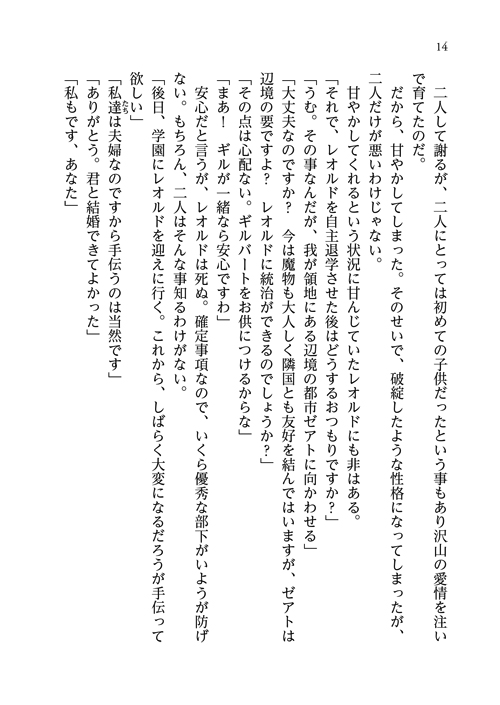 14
二人して謝るが、二人にとっては初めての子供だったという事もあり沢山の愛情を注い
で育てたのだ。
だから、甘やかしてしまった。そのせいで、破綻したような性格になってしまったが、
二人だけが悪いわけじゃない。
甘やかしてくれるという状況に甘んじていたレオルドにも非はある。
「それで、レオルドを自主退学させた後はどうするおつもりですか？」
「うむ。その事なんだが、我が領地にある辺境の都市ゼアトに向かわせる」
「大丈夫なのですか？　今は魔物も大人しく隣国とも友好を結んではいますが、ゼアトは
辺境の要ですよ？　レオルドに統治ができるのでしょうか？」
「その点は心配ない。ギルバートをお供につけるからな」
「まあ！　ギルが一緒なら安心ですわ」
安心だと言うが、レオルドは死ぬ。確定事項なので、いくら優秀な部下がいようが防げ
ない。もちろん、二人はそんな事知るわけがない。
「後日、学園にレオルドを迎えに行く。これから、しばらく大変になるだろうが手伝って
欲しい」
「私達は夫婦なのですから手伝うのは当然です」
「ありがとう。君と結婚できてよかった」
「私もです、あなた」